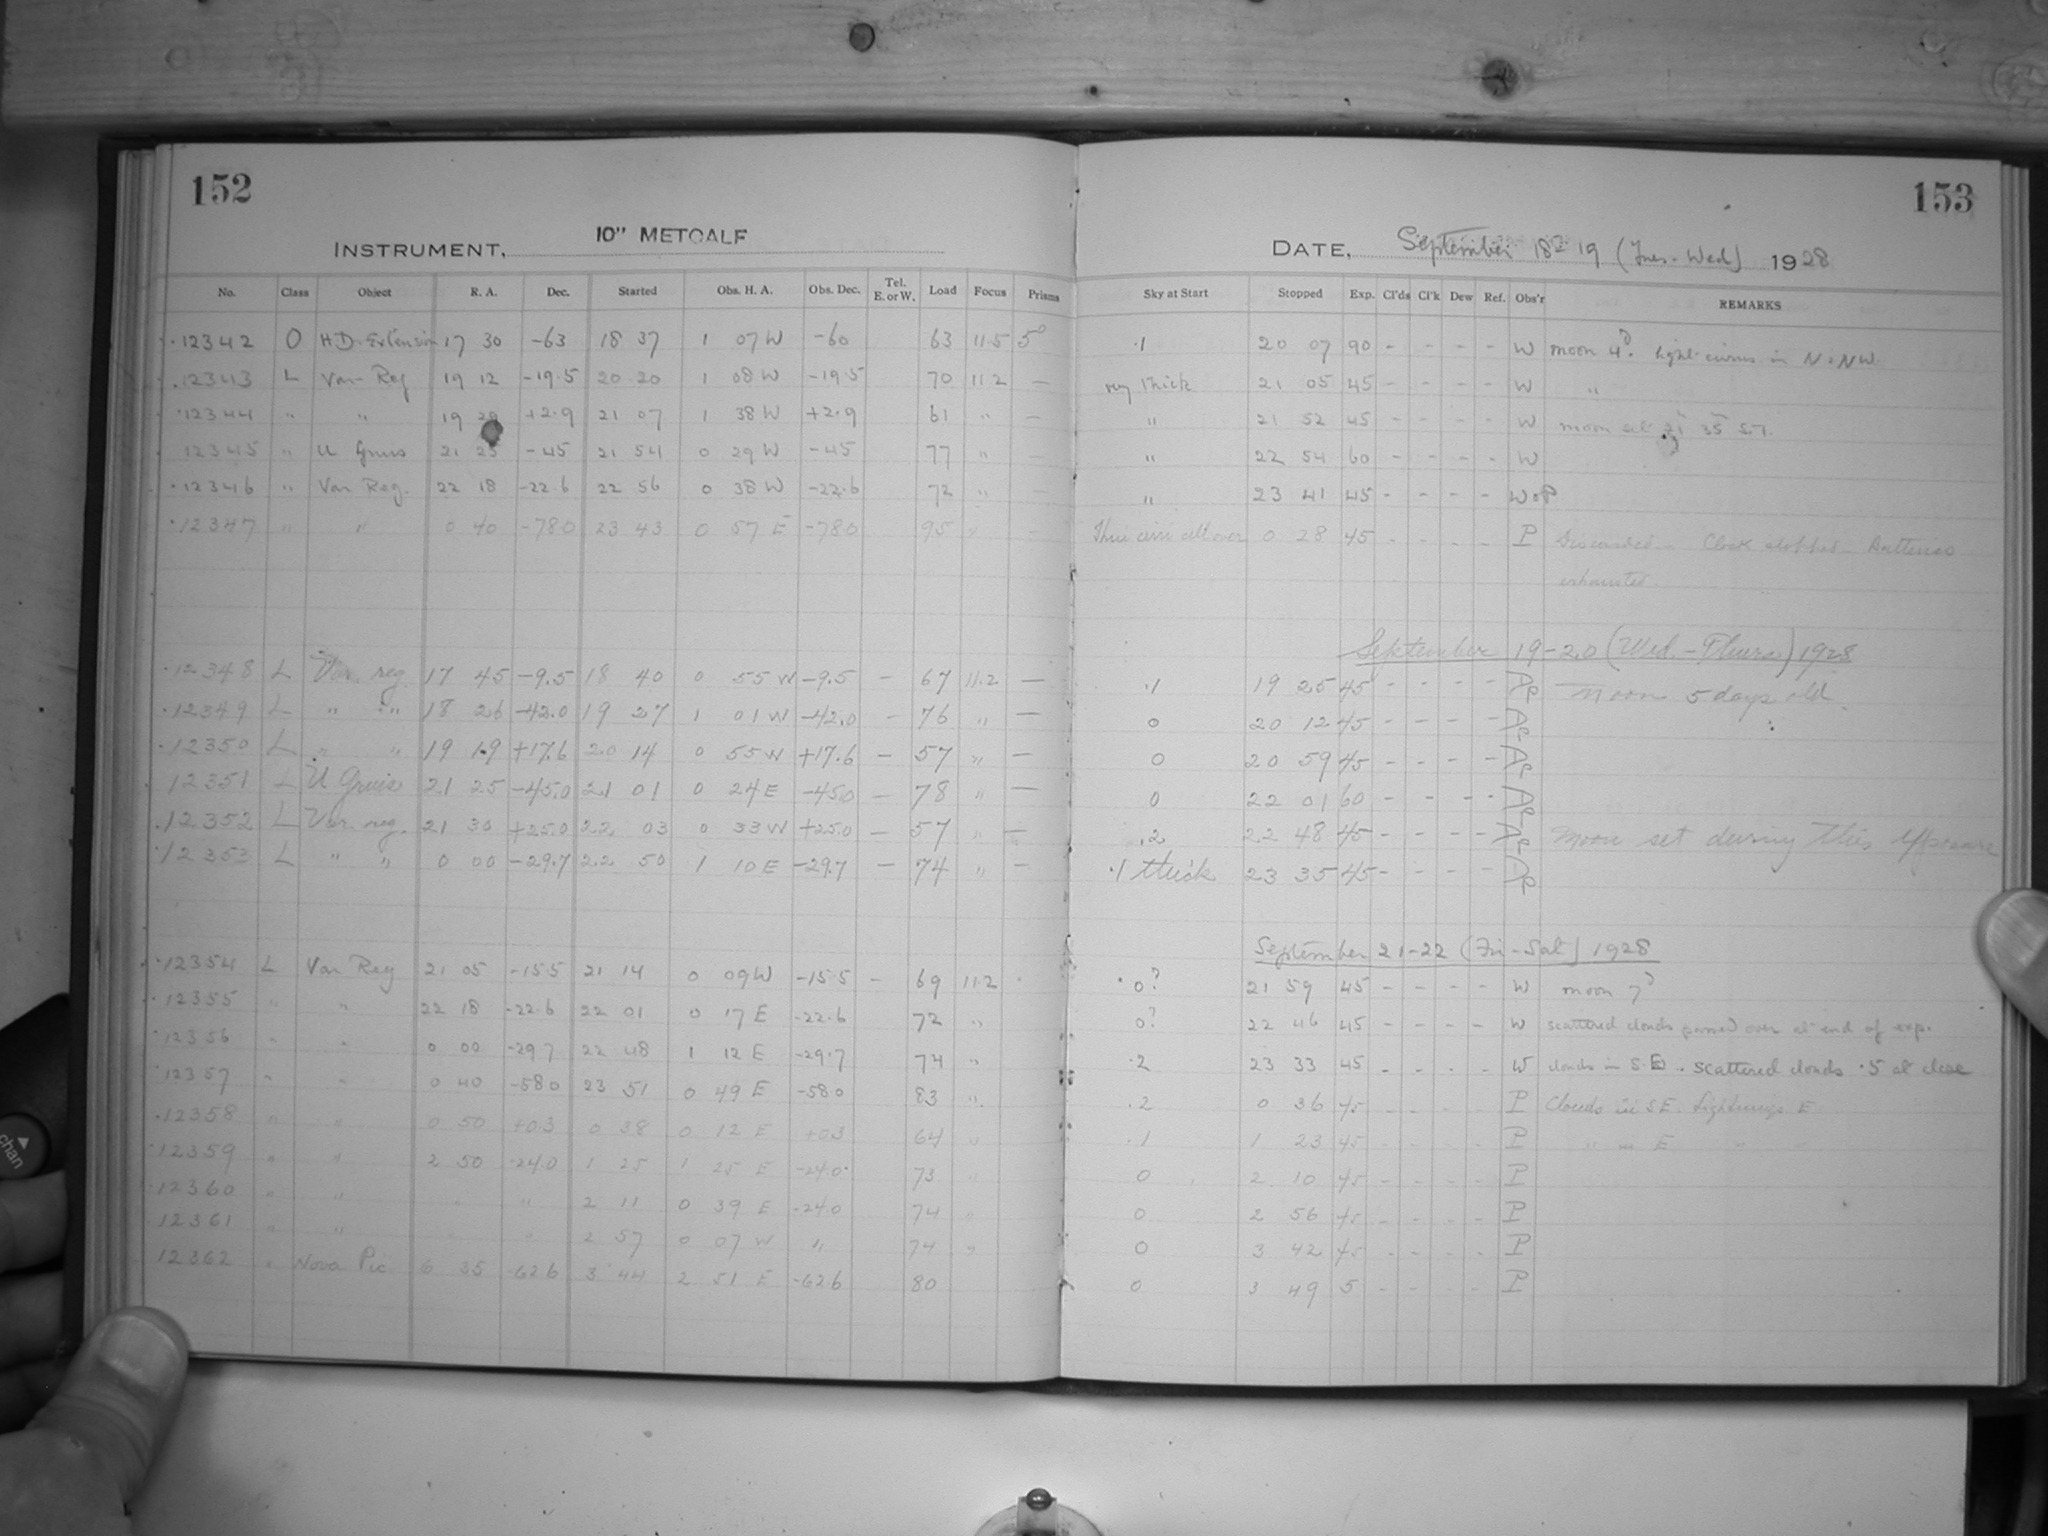 152
INSTRUMENT, 10" METCALF
No. Class Object R. A. Dec. Started Obs. H. A. Obs. Dec. Tel. E. or W. Load Focus Prisms
12342 O H.D. Extension 17 30 -63 18 37 1 07 W -60 63 11.5 5°
12343 L Var Reg 19 12 -19.5 20 20 1 08 W -19.5 70 11.2 —
12344 " " 19 +2.9 21 07 1 38 W +2.9 61 " —
12345 " U Gruis 21 25 -45 21 54 0 29 W -45 77 " —
12346 " Var Reg. 22 18 -22.6 22 56 0 38 W -22.6 72 " —
12347 " " 0 40 -78.0 23 43 0 57 E -78.0 95 " —
12348 L Var. reg. 17 45 -9.5 18 40 0 55 W -9.5 — 67 11.2 —
12349 L " " 18 26 -42.0 19 27 1 01 W -42.0 — 76 " —
12350 L " " 19 19 +17.6 20 14 0 55 W +17.6 — 57 " —
12351 L U Gruis 21 25 -45.0 21 01 0 24 E -45.0 — 78 " —
12352 L Var. reg. 21 30 +25.0 22 03 0 33 W +25.0 — 57 " —
12353 L " " 0 00 -29.7 22 50 1 10 E -29.7 — 74 " —
12354 L Var Reg 21 05 -15.5 21 14 0 09 W -15.5 — 69 11.2
12355 " " 22 18 -22.6 22 01 0 17 E -22.6 72 "
12356 " " 0 00 -29.7 22 48 1 12 E -29.7 74 "
12357 " " 0 40 -58.0 23 51 0 49 E -58.0 83 "
12358 " " 0 50 +0.3 0 38 0 12 E +0.3 64 "
12359 " " 2 50 -24.0 1 25 1 25 E -24.0 73 "
12360 " " " " 2 11 0 39 E -24.0 74 "
12361 " " " " 2 57 0 07 W " 74 "
12362 " Nova Pic 6 35 -62.6 3 44 2 51 E -62.6 80
153
DATE, September 18-19 (Tues-Wed) 1928
Sky at Start Stopped Exp. Cl'ds Cl'k Dew Ref. Obs'r REMARKS
.1 20 07 90 - - - - W moon 4d. light cirrus in N & NW.
very thick 21 05 45 - - - - W "
" 21 52 45 - - - - W moon set 21 35 S.T.
" 22 54 60 - - - - W
" 23 41 45 - - - - W & P
cirri all over 0 28 45 - - - - P Discarded — Clock stopped — Batteries
exhausted.
September 19-20 (Wed.-Thurs.) 1928
.1 19 25 45 - - - - Ap Moon 5 days old.
0 20 12 45 - - - - Ap
0 20 59 45 - - - - Ap
0 22 01 60 - - - - Ap
.2 22 48 45 - - - - Ap Moon set during this exposure
.1 thick 23 35 45 - - - - Ap
September 21-22 (Fri-Sat) 1928
0? 21 59 45 - - - - W moon 7d
0? 22 46 45 - - - - W scattered clouds passed over at end of exp.
.2 23 33 45 - - - - W clouds in S.E. scattered clouds .5 at close
.2 0 36 45 - - - - P Clouds in S E. Lightnings E
.1 1 23 45 - - - - P " in E " "
0 2 10 45 - - - - P
0 2 56 45 - - - - P
0 3 42 45 - - - - P
0 3 49 5 - - - - P
chan